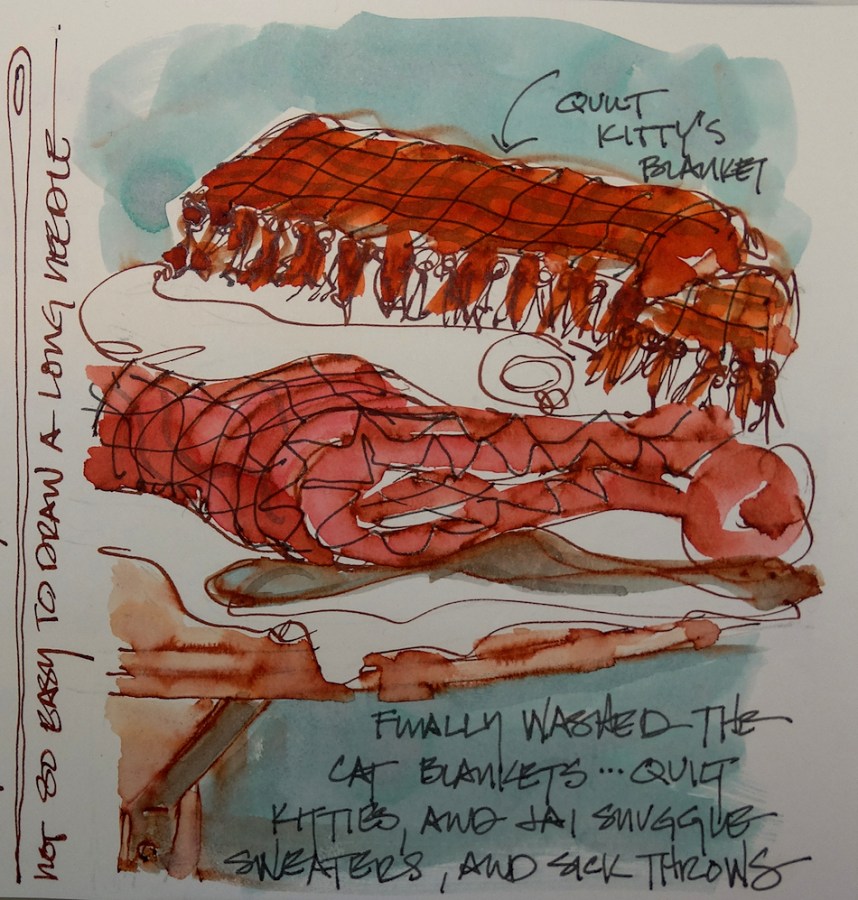 NOT SO EASY TO DRAW A LONG NEEDLE
QUILT
KITTY'S
BLANKET
FINALLY WASHED THE
CAT BLANKETS... QUILT
KITTIES, AND JAI SNUGGLE
SWEATERS, AND SICK THROWS